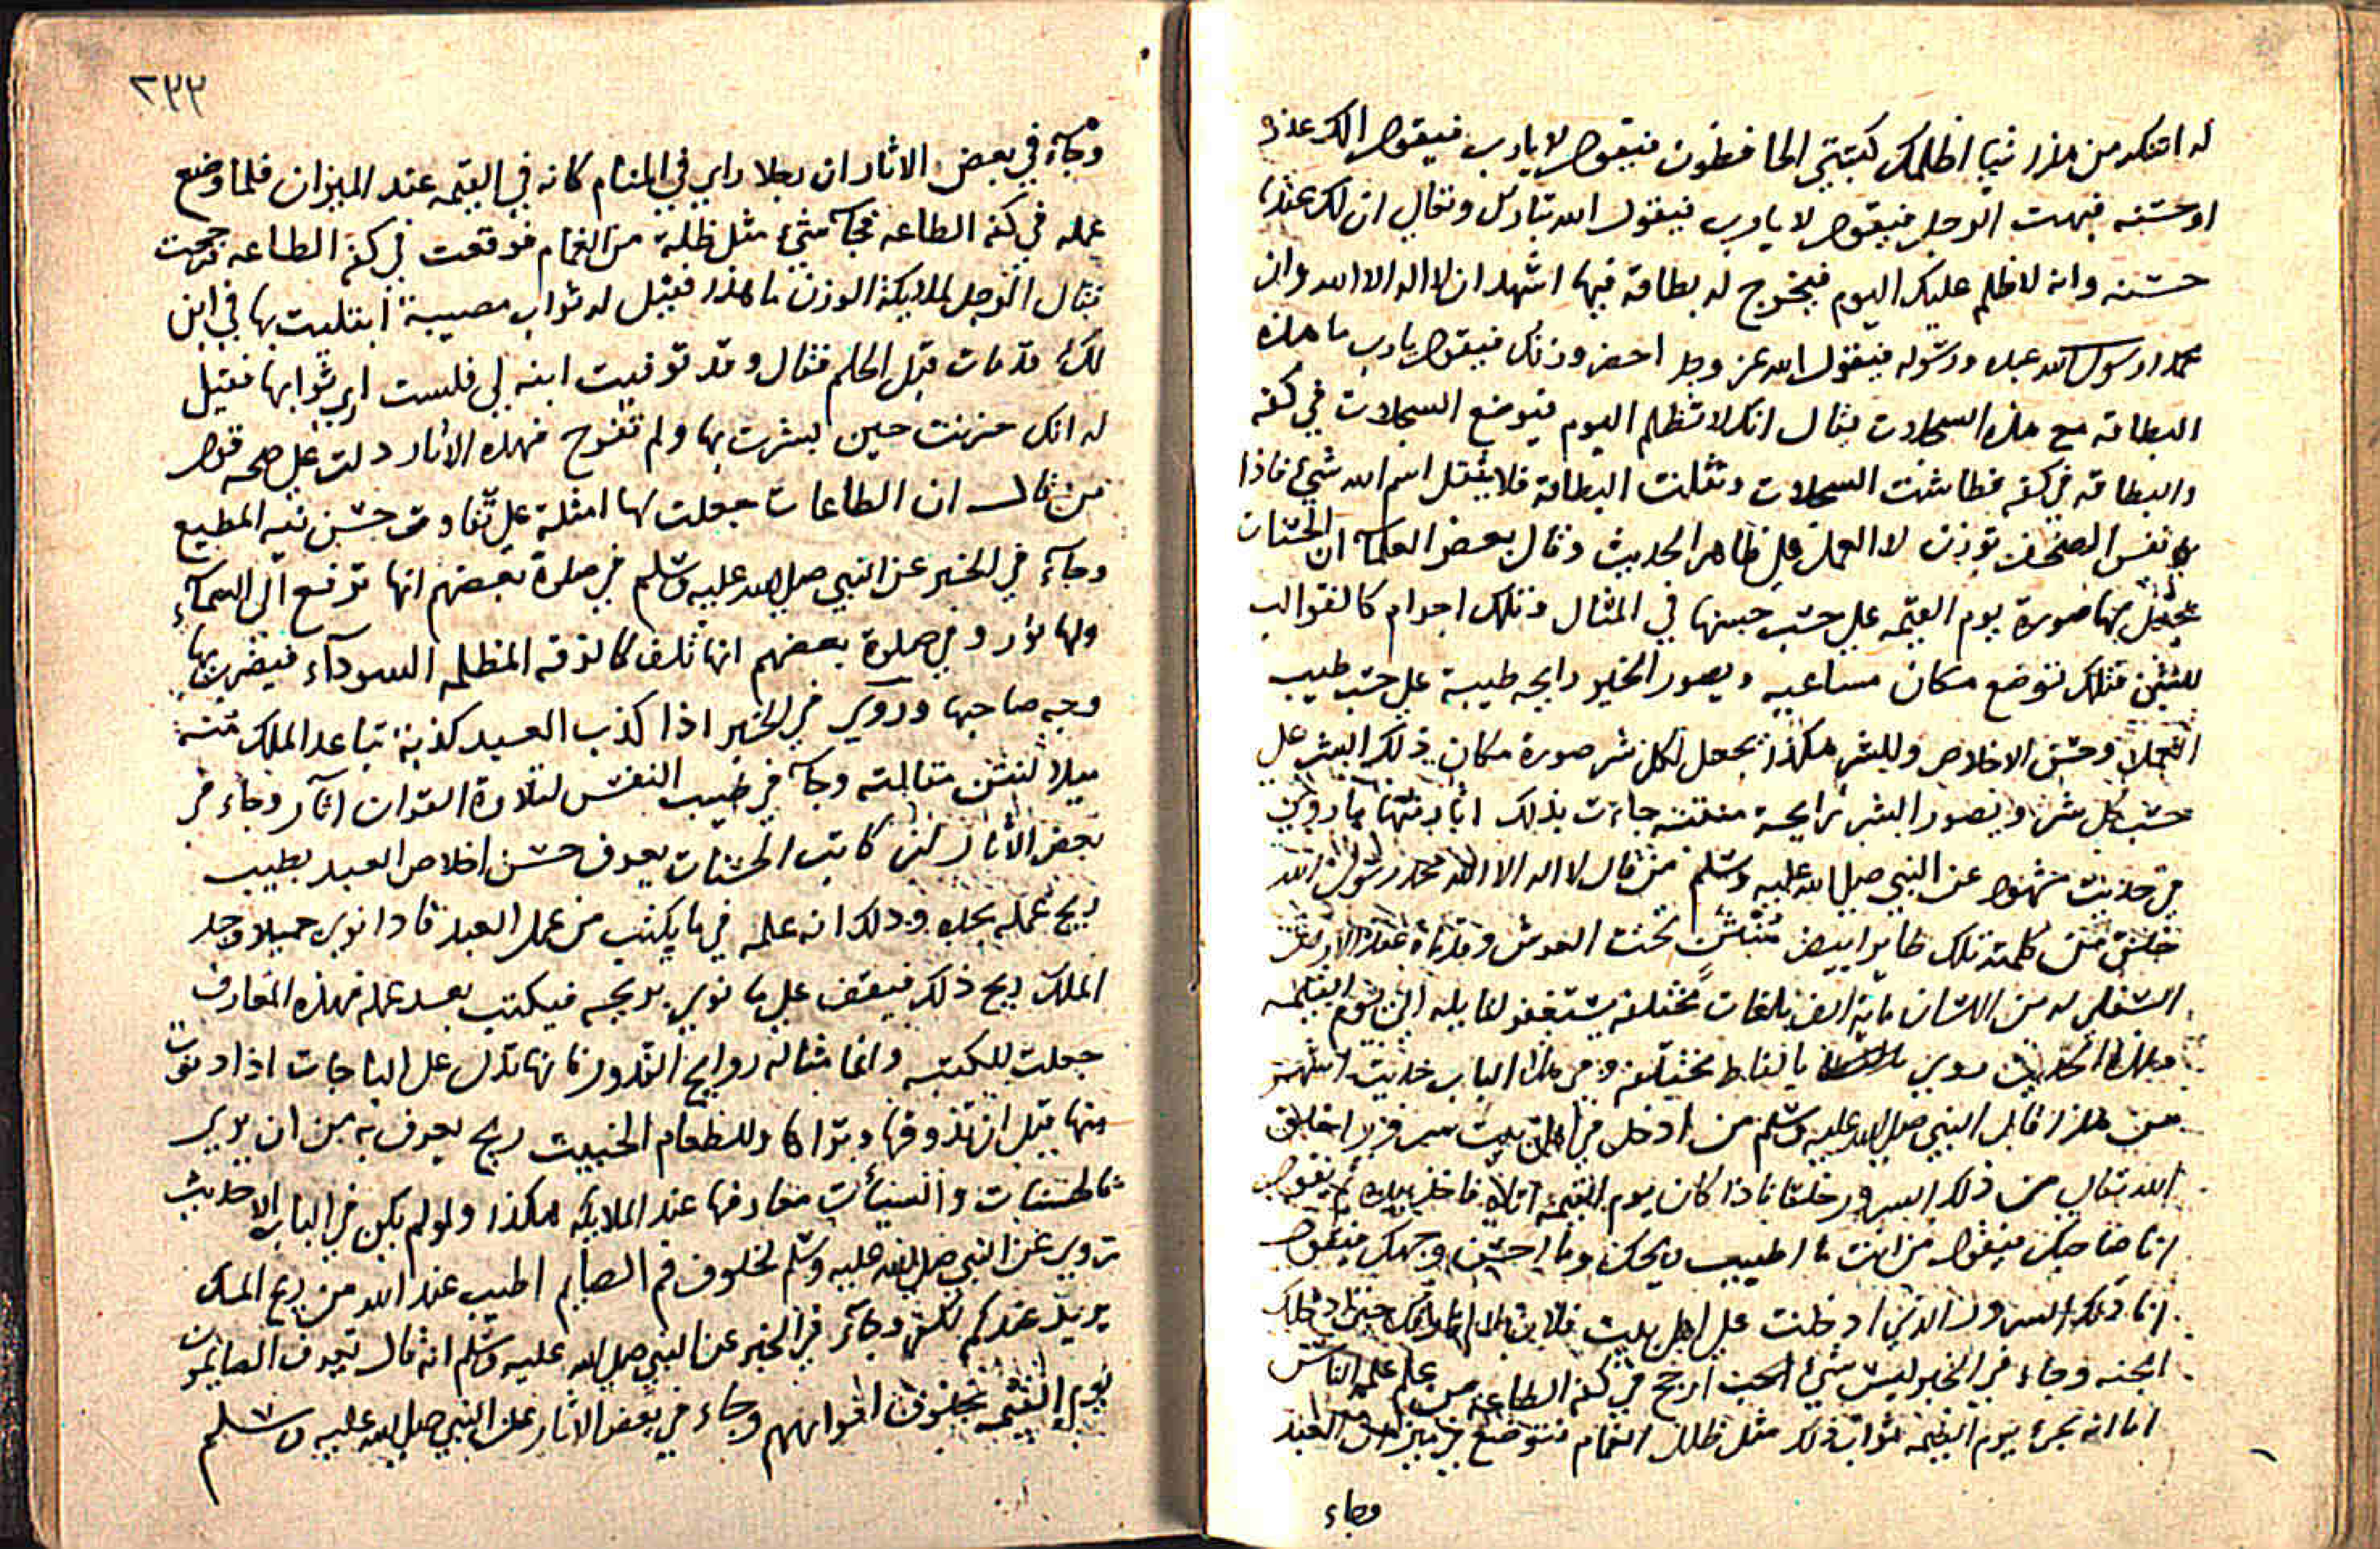 له اتنكر من هذا شيا اظلمك كتبتي الحافظون فيقول لا يارب فيقول الك عذر
او حسنه فبهت الرجل فيقول لا يارب فيقول الله تبارك وتعالى ان لك عندنا
حسنه وانه لا ظلم عليك اليوم فيخرج له بطاقه فيها اشهد ان لا اله الا الله وان
محمدا رسول الله عبده ورسوله فيقول الله عز وجل احضر وزنك فيقول يا رب ما هذه
البطاقه مع هذه السجلات فقال انك لا تظلم اليوم فتوضع السجلات في كفه
والبطاقه في كفه فطاشت السجلات وثقلت البطاقة فلا يثقل اسم الله شيء فاذا
نفس الصحف توزن لا العمل على ظاهر الحديث وقال بعض العلمآ ان الحسنات
يجعل بها صورة يوم القيمه على حسب حسنها في المثال وتلك اجرام كالقوالب
فتلك توضع مكان مساعيه ويصور الخير رايحه طيبة على حسب طيب
العمل وحسن الاخلاص وللشر هكذا يجعل لكل شر صورة مكان ذلك الشر على
حسب كل شر ويصور الشر رايحة منتنه جاءت بذلك اثار منها ما روي
في حديث مشهور عن النبي صلى الله عليه وسلم من قال لا اله الا الله محمد رسول الله
خلق من كلمته تلك طايرا ابيض تحت العرش
السفلى له من اللسان ماية الف بلغات مختلفه يستغفر لقايله الى يوم القيمه
وهذا الحديث روي بالفاظ مختلفه وفي هذا الباب حديث اشهر
من هذا قال النبي صلى الله عليه وسلم من ادخل في اهل بيت سرورا خلق
الله تعالى من ذلك السرور خلقا فاذا كان يوم القيمه اتاه فاخذ بيده ثم يقول
انا صاحبك فيقول من انت ما اطيب ريحك وما احسن وجهك فيقول
انا ذلك السرور الذي ادخلت على اهل بيت فلان حتى ادخلك
الجنه وجاء في الخبر ليس شيء ارجح في كفه الطاعه من علم علمه الناس
اما انه يجئ يوم القيمه ثواب ذلك مثل ظلل الغمام فتوضع في ميزان العبد
وجاء
٢٣٣
وجآء في بعض الاثار ان رجلا راي في المنام كانه في القيمه عند الميزان فلما وضع
عمله في كفه الطاعه فجآء شيء مثل ظلة من الغمام فوقعت في كفة الطاعه فرجحت
فقال الرجل لملايكة الوزن ما هذا فقيل له ثواب مصيبة ابتليت بها في ابن
لك قد مات قبل الحلم فقال وقد توفيت ابنه لي فلست اري ثوابها فقيل
له انك حزنت حين بشرت بها ولم تفرح فهذه الاثار دلت على صحه قول
من قال ان الطاعات جعلت لها امثلة على تفاوت حسن نيه المطيع
وجآء في الخبر عن النبي صلى الله عليه وسلم في صلوة بعضهم انها ترفع الى السمآء
ولها نور وفي صلوة بعضهم انها تلف كالخرقه المظلمه السودآء فيضرب بها
وجه صاحبها وروي في الخبر اذا كذب العبد كذبة تباعد الملك منه
ميلا لنتن مقالته وجآء في طيب النفس لتلاوة القران اثار وجاء في
بعض الاثار ان كاتب الحسنات يعرف حسن اخلاص العبد بطيب
ريح عمله وذلك انه علمه فيما يكتب من عمل العبد فاذا نوى جميلا وجد
الملك ريح ذلك فيقف على ما نوى بريحه فيكتب بعد عمله فهذه المعارف
جعلت للكتبه وانما مثاله روايح القدور فانها تدل على الباجات اذا دنوت
منها قبل ان تذوقها وتراها وللطعام الخبيث ريح يعرف به من ان يرى
فالحسنات والسيات معارفها عند الملايكه هكذا ولو لم يكن في الباب الا حديث
روي عن النبي صلى الله عليه وسلم لخلوف فم الصايم اطيب عند الله من ريح المسك
وجآء في الخبر عن النبي صلى الله عليه وسلم انه قال يعرف الصايمون
يوم القيمه بخلوف افواههم وجاء في بعض الاثار عن النبي صلى الله عليه وسلم